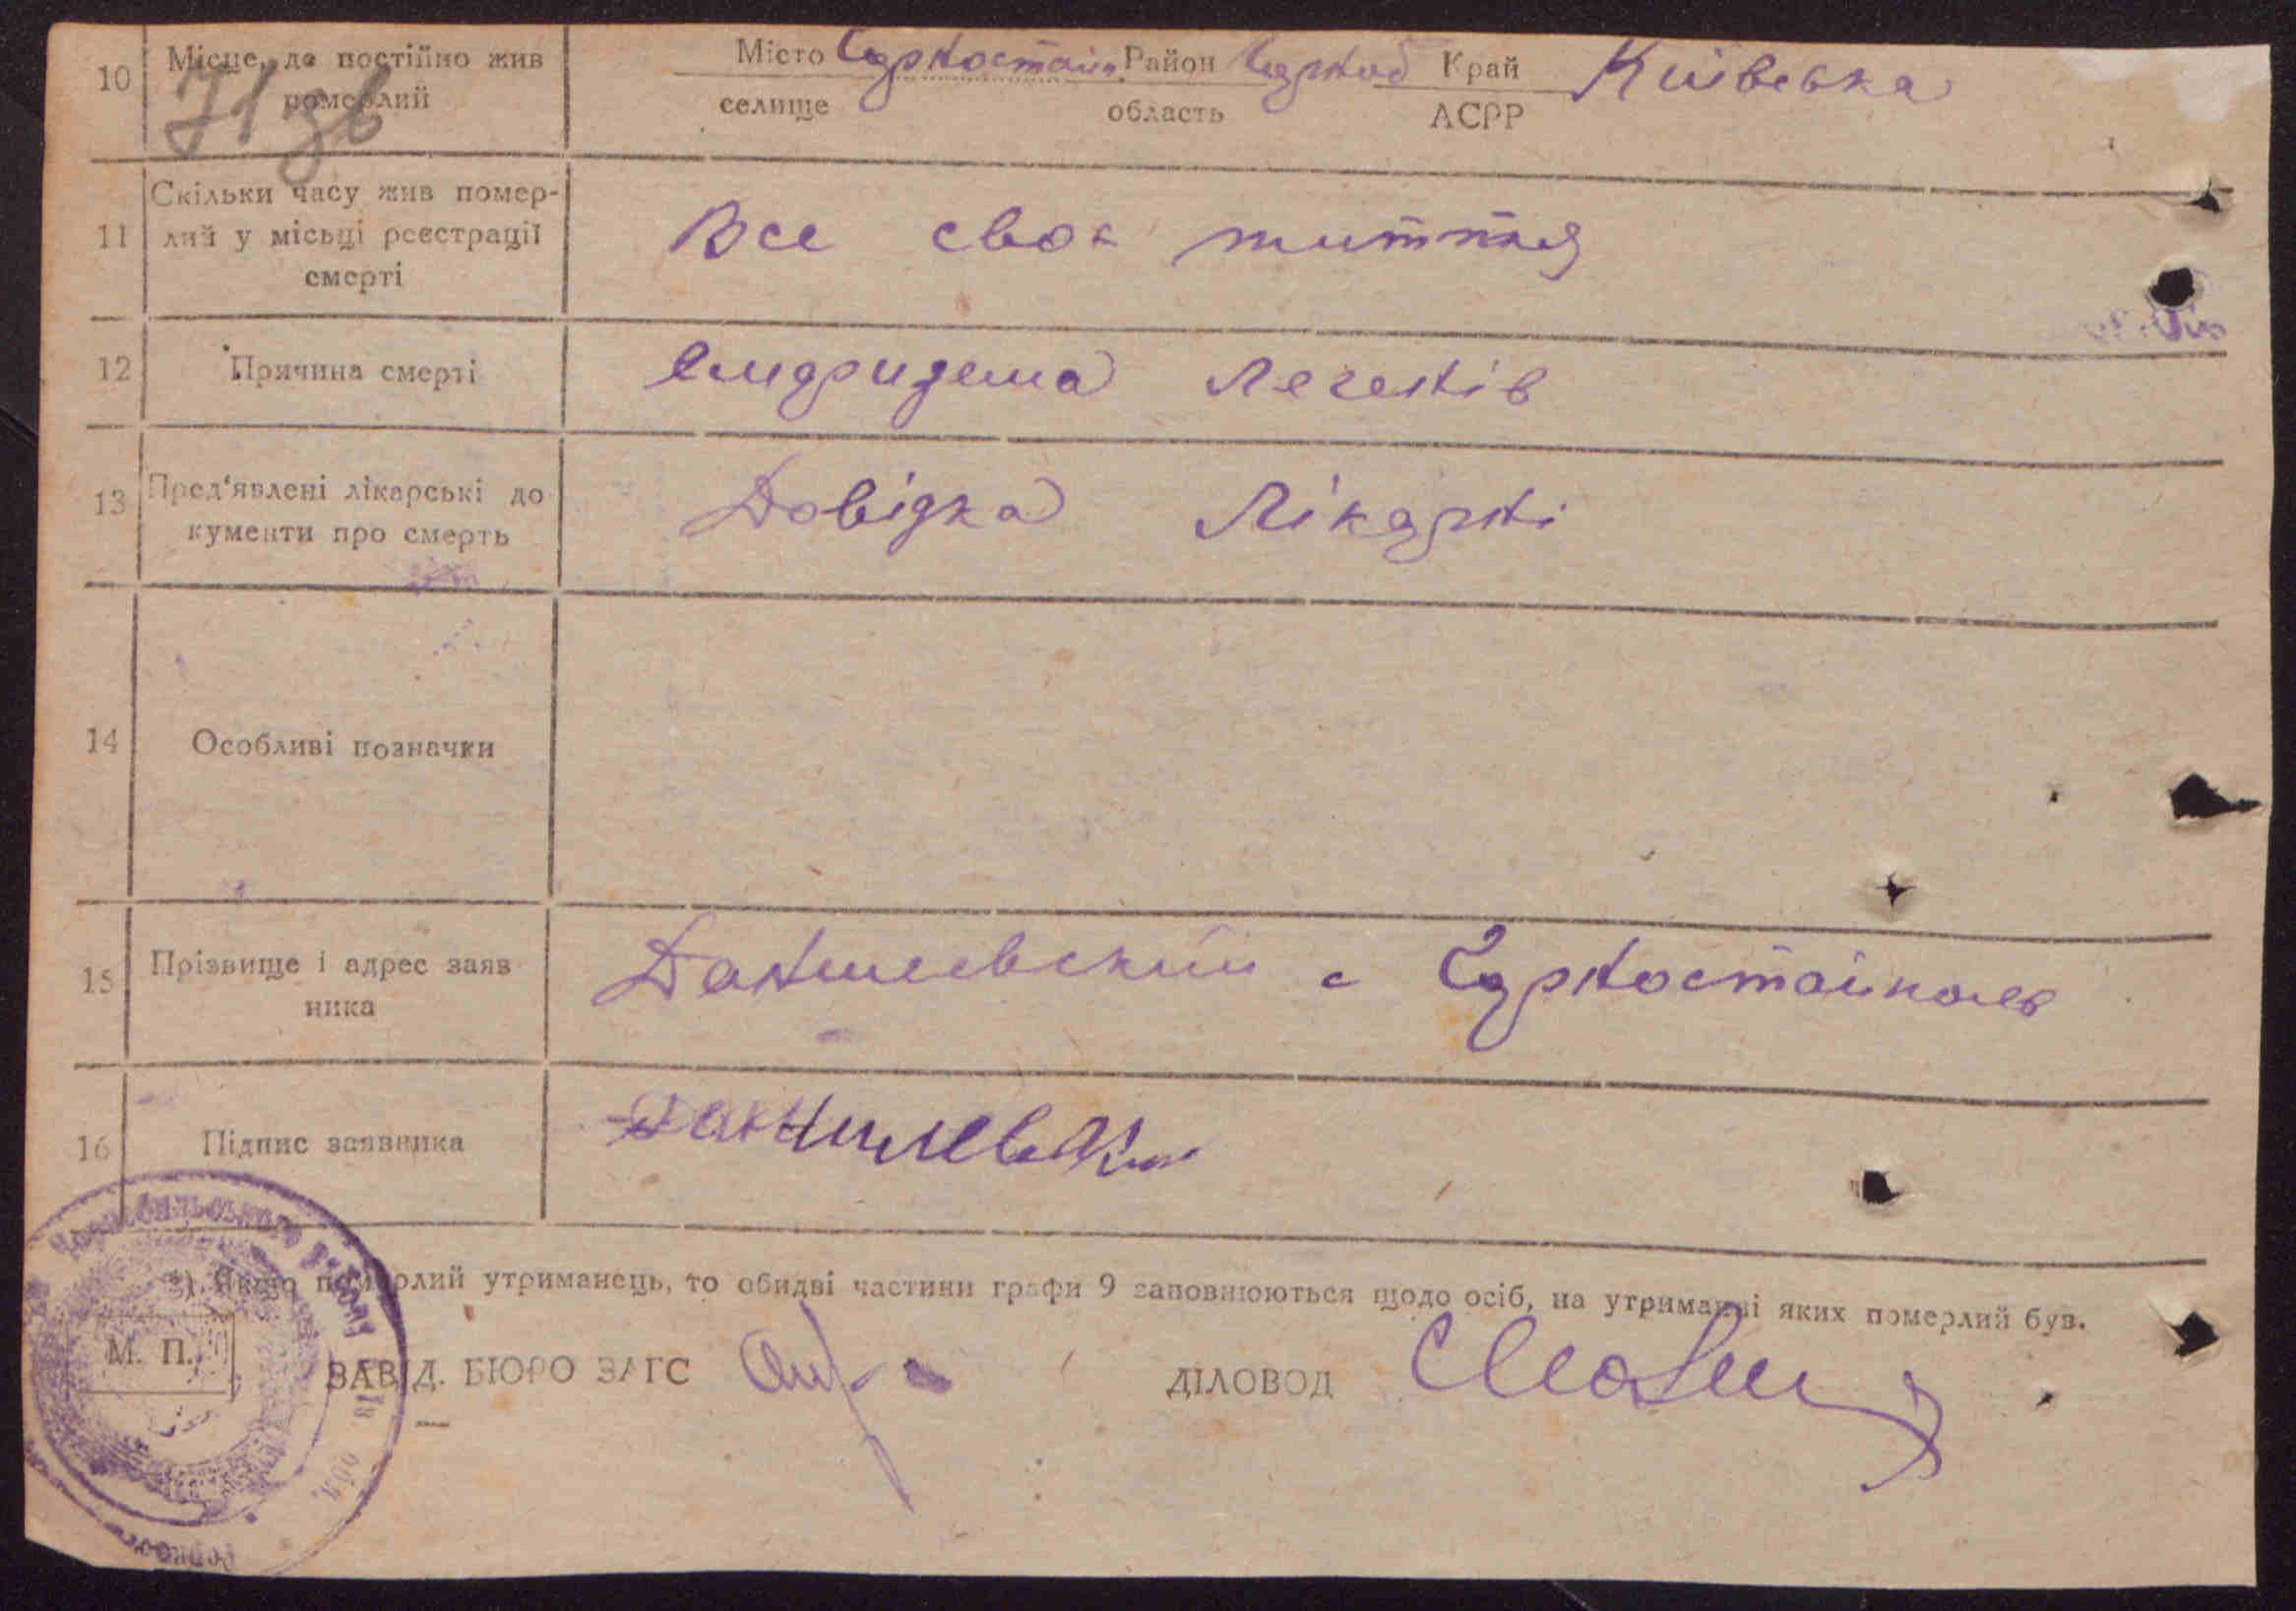 10 Місце, де постійно жив померлий
71 зв
Місто Чорностайп. Район Чорноб Край Київська
селище область АСРР
11 Скільки часу жив помер-
лий у місьці реєстрації
смерті
Все своє життя
12 Причина смерті
Емфизема легенів
13 Пред'явлені лікарські до
кументи про смерть
Довідка Лікарні
14 Особливі позначки
15 Прізвище і адрес заяв
ника
Данилевский с Чорностайполь
16 Підпис заявника
*) Якщо померлий утриманець, то обидві частини графи 9 заповнюються щодо осіб, на утриманні яких померлий був.
М. П.
ЗАВІД. БЮРО ЗАГС
ДІЛОВОД